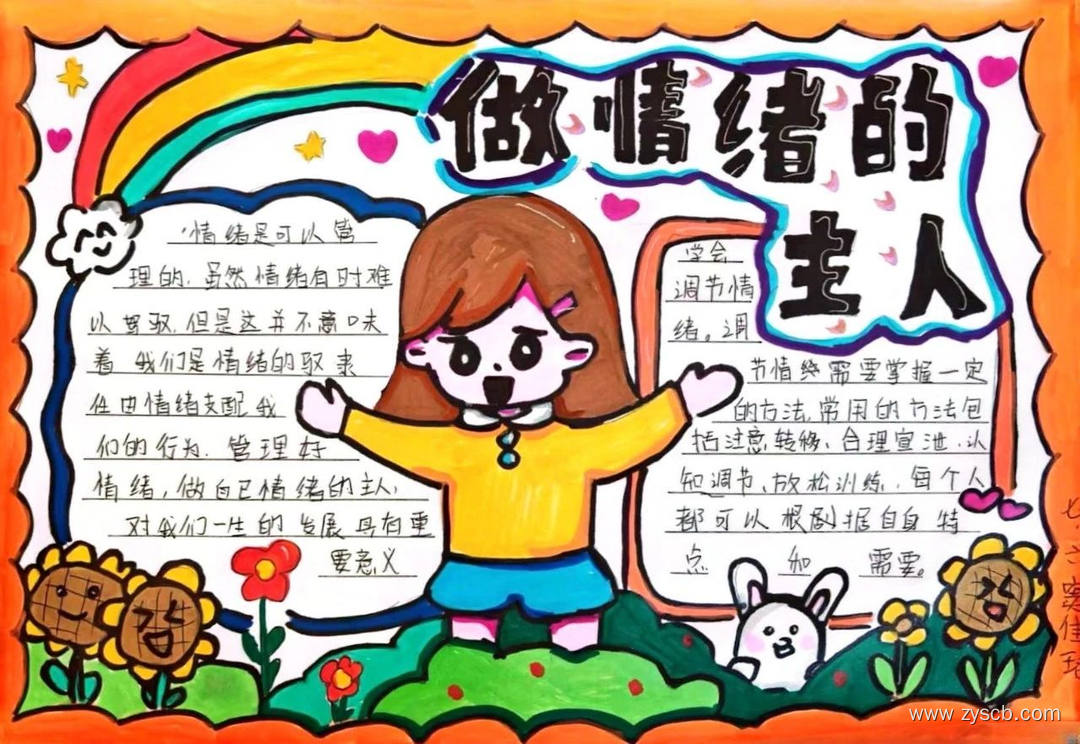 做情绪的
主人
情绪是可以管
理的，虽然情绪有时难
以驾驭，但是这并不意味
着 我们是情绪的驭隶
任由情绪支配我
们的行为，管理好
情绪，做自己情绪的主人，
对我们一生的发展具有重
要意义
学会
调节情
绪。调
节情绪需要掌握一定
的方法，常用的方法包
括注意转移、合理宣泄、认
知调节、放松训练，每个人
都可以根剧据自身特
点 和 需要。
www.zyscb.com